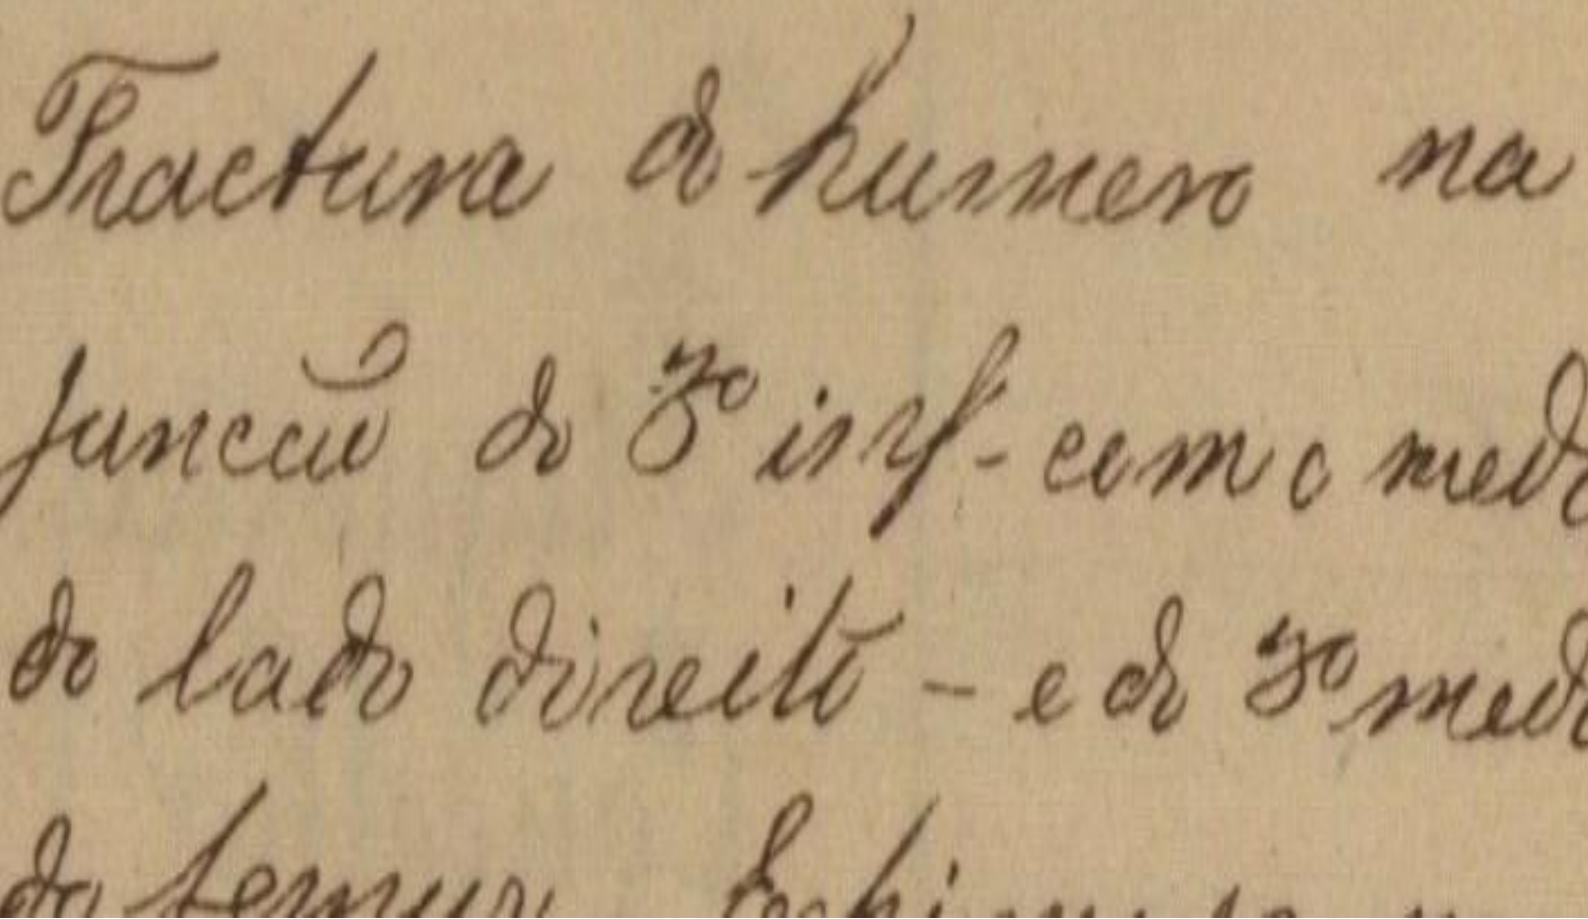 Fractura do humero na
juncção do 3º inf- com o med
do lado direito - e do 3º med
do femur